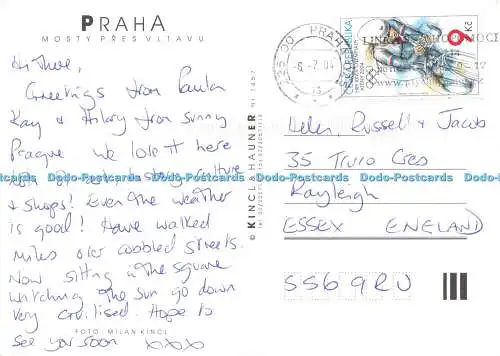 PRAHA
MOSTY PŘES VLTAVU
Hi There,
Greetings from Paula
Kay & Hilary from sunny
Prague we love it here
& shops! Even the weather
is good! Have walked
miles over cobbled streets.
Now sitting in the square
watching the sun go down
very civilised. Hope to
see you soon xxx
FOTO: MILAN KINCL
© KINCL & HAUNER
PRAHA
-6.-7.04
9 Kč
Helen, Russell & Jacob
35 Truro Cres
Rayleigh
ESSEX ENGLAND
SS6 9RU
Dodo-Postcards Dodo-Postcards Dodo-Postcards Dodo-Postcards